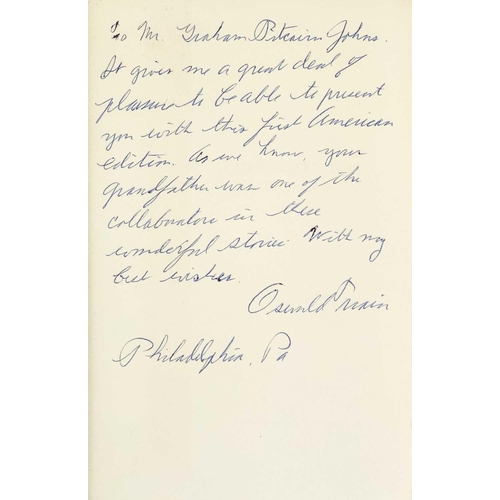 To Mr. Graham Pitcairn Johns.
It gives me a great deal of
pleasure to be able to present
you with this first American
edition. As we know, your
grandfather was one of the
collaborators in these
wonderful stories. With my
best wishes.
Oswald Train
Philadelphia, Pa